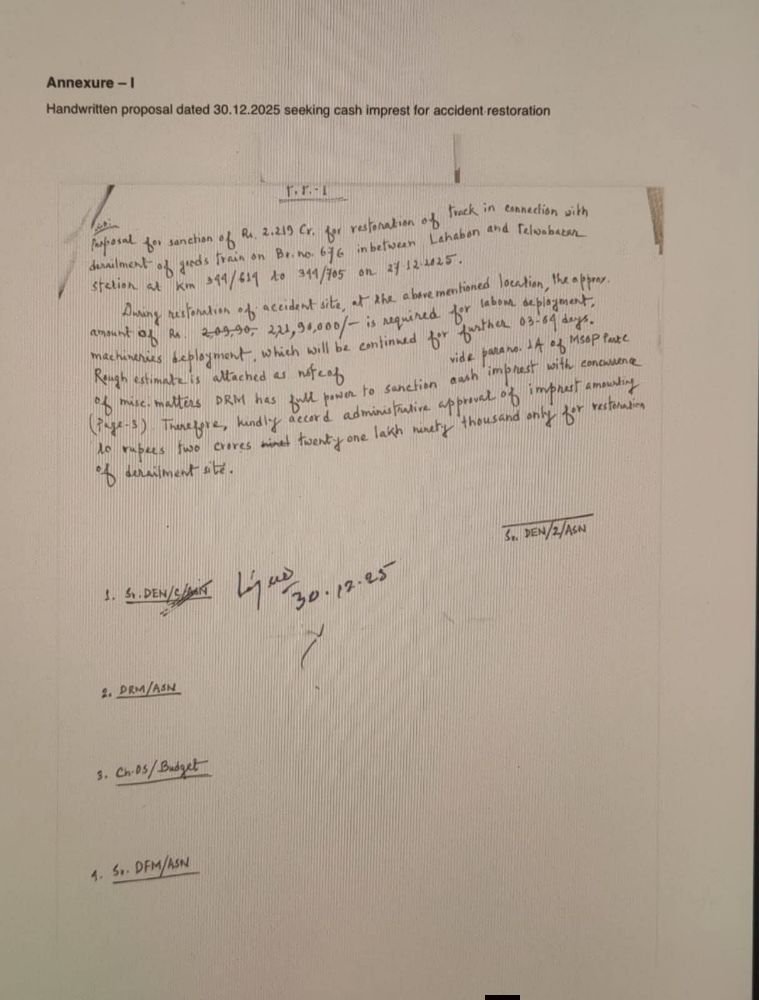 Annexure – I
Handwritten proposal dated 30.12.2025 seeking cash imprest for accident restoration
P.P.-1
Sub:-
Proposal for sanction of Rs. 2.219 Cr. for restoration of track in connection with
derailment of goods train on Br. no. 676 in between Lahabon and Telwabazar
station at Km 344/619 to 344/705 on 27.12.2025.
During restoration of accident site, at the above mentioned location, the approx.
amount of Rs. 2,21,90,000/- is required for labour deployment,
machineries deployment, which will be continued for further 03-04 days.
Rough estimate is attached as note of vide para no. 1A of MSOP Part C
of misc. matters DRM has full power to sanction cash imprest with concurrence
(Page-3). Therefore, kindly accord administrative approval of imprest amounting
to rupees two crores twenty one lakh ninety thousand only for restoration
of derailment site.
Sr. DEN/2/ASN
1. Sr. DEN/C/ASN
30.12.25
2. DRM/ASN
3. Ch.OS/Budget
4. Sr. DFM/ASN